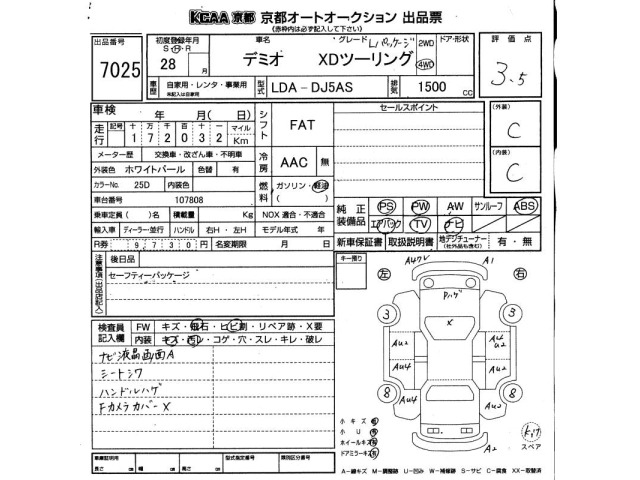 KCAA 京都 京都オートオークション 出品票
(赤枠内は必ず記入して下さい)
出品番号 7025
初度登録年月 S・H・R 28 月
車名 デミオ
グレード Lパッケージ XDツーリング
2WD 4WD
ドア・形状
評価点 3.5
車歴 自家用・レンタ・事業用
型式 LDA-DJ5AS
排気 1500 CC
車検 年 月(日)
走行 記号 十 万 千 百 十 一 マイル
1 7 2 0 3 2 Km
メーター歴 交換車・改ざん車・不明車
外装色 ホワイトパール 色替 有
カラーNo. 25D 内装色
車台番号 107808
乗車定員( )名 積載量 Kg NOX 適合・不適合
輸入車 ディーラー・並行 ハンドル 右H・左H モデル年式 年
R券 9,730円 名変期限 月 日
シフト FAT
冷房 AAC 無
燃料 ガソリン・軽油
( )
セールスポイント
(外装) C
(内装) C
純正装備品 PS PW AW サンルーフ ABS
エアバック TV ナビ
新車保証書 取扱説明書 地デジチューナー(社外品も含む) 有・無
注意事項(出品店記入)
後日品
セーフティーパッケージ
キー預り
左 右
A4ワレ A1
Pハゲ
X
3 3
AU2 AU4
AU4 AU4
8 8
A2
スペア
検査員記入欄 FW キズ・飛石・ヒビ割・リペア跡・X要
内装 キズ・汚レ・コゲ・穴・スレ・キレ・破レ
ナビ液晶画面A
シートシワ
ハンドルハゲ
FカメラカバーX
小キズ 有
小U 有
ホイールキズ 有
ドアミラーキズ 有
車庫証明用 長さ cm 幅 cm 高さ cm
型式指定番号
類別区分番号
A-線キズ M-調整跡 U-凹み W-補修跡 S-サビ C-腐食 XX-取替済